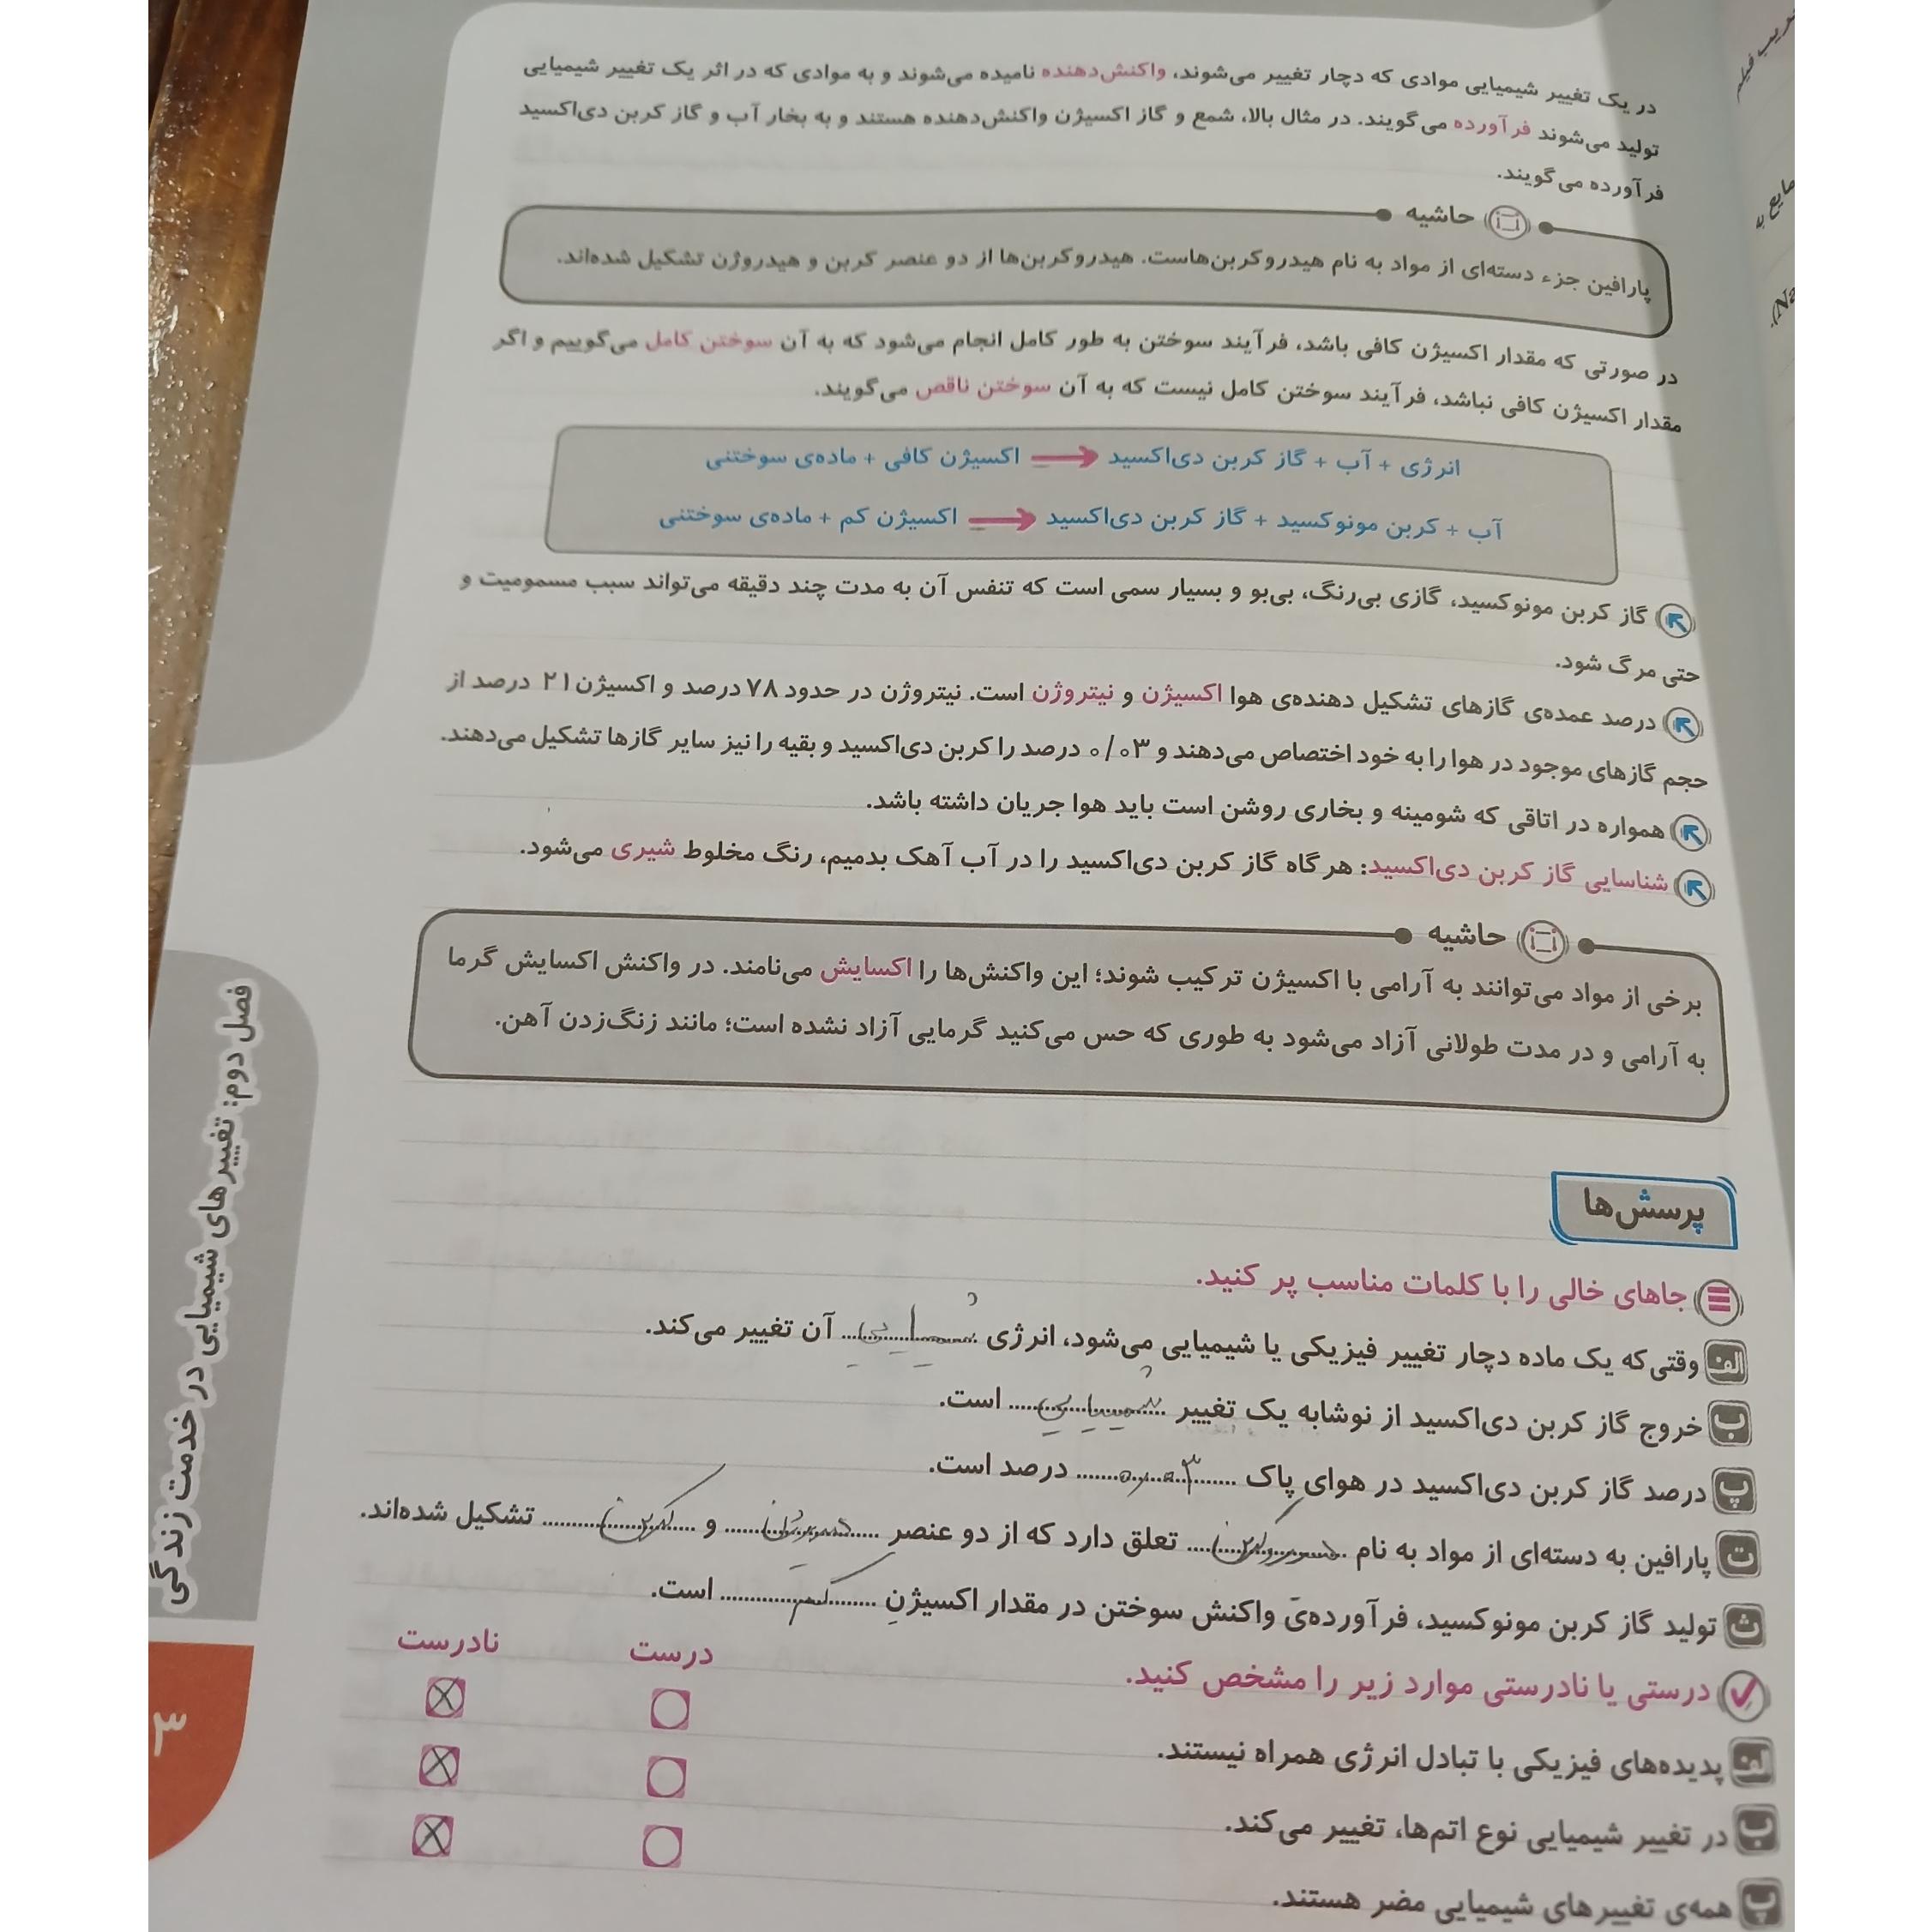 در یک تغییر شیمیایی موادی که دچار تغییر می‌شوند، واکنش‌دهنده نامیده می‌شوند و به موادی که در اثر یک تغییر شیمیایی
تولید می‌شوند فرآورده می‌گویند. در مثال بالا، شمع و گاز اکسیژن واکنش‌دهنده هستند و به بخار آب و گاز کربن دی‌اکسید
فرآورده می‌گویند.
حاشیه
پارافین جزء دسته‌ای از مواد به نام هیدروکربن‌هاست. هیدروکربن‌ها از دو عنصر کربن و هیدروژن تشکیل شده‌اند.
در صورتی که مقدار اکسیژن کافی باشد، فرآیند سوختن به طور کامل انجام می‌شود که به آن سوختن کامل می‌گوییم و اگر
مقدار اکسیژن کافی نباشد، فرآیند سوختن کامل نیست که به آن سوختن ناقص می‌گویند.
انرژی + آب + گاز کربن دی‌اکسید ⟶ اکسیژن کافی + ماده‌ی سوختنی
آب + کربن مونوکسید + گاز کربن دی‌اکسید ⟶ اکسیژن کم + ماده‌ی سوختنی
گاز کربن مونوکسید، گازی بی‌رنگ، بی‌بو و بسیار سمی است که تنفس آن به مدت چند دقیقه می‌تواند سبب مسمومیت و
حتی مرگ شود.
درصد عمده‌ی گازهای تشکیل دهنده‌ی هوا اکسیژن و نیتروژن است. نیتروژن در حدود ۷۸ درصد و اکسیژن ۲۱ درصد از
حجم گازهای موجود در هوا را به خود اختصاص می‌دهند و ۰/۰۳ درصد را کربن دی‌اکسید و بقیه را نیز سایر گازها تشکیل می‌دهند.
همواره در اتاقی که شومینه و بخاری روشن است باید هوا جریان داشته باشد.
شناسایی گاز کربن دی‌اکسید: هرگاه گاز کربن دی‌اکسید را در آب آهک بدمیم، رنگ مخلوط شیری می‌شود.
حاشیه
برخی از مواد می‌توانند به آرامی با اکسیژن ترکیب شوند؛ این واکنش‌ها را اکسایش می‌نامند. در واکنش اکسایش گرما
به آرامی و در مدت طولانی آزاد می‌شود به طوری که حس می‌کنید گرمایی آزاد نشده است؛ مانند زنگ‌زدن آهن.
پرسش‌ها
جاهای خالی را با کلمات مناسب پر کنید.
الف وقتی‌که یک ماده دچار تغییر فیزیکی یا شیمیایی می‌شود، انرژی شیمیایی آن تغییر می‌کند.
ب خروج گاز کربن دی‌اکسید از نوشابه یک تغییر شیمیایی است.
پ درصد گاز کربن دی‌اکسید در هوای پاک ۰/۰۳ درصد است.
ت پارافین به دسته‌ای از مواد به نام هیدروکربن تعلق دارد که از دو عنصر هیدروژن و کربن تشکیل شده‌اند.
ث تولید گاز کربن مونوکسید، فرآورده‌ی واکنش سوختن در مقدار اکسیژنِ کم است.
درستی یا نادرستی موارد زیر را مشخص کنید.
درست نادرست
الف پدیده‌های فیزیکی با تبادل انرژی همراه نیستند.
ب در تغییر شیمیایی نوع اتم‌ها، تغییر می‌کند.
پ همه‌ی تغییرهای شیمیایی مضر هستند.
فصل دوم: تغییرهای شیمیایی در خدمت زندگی
۳